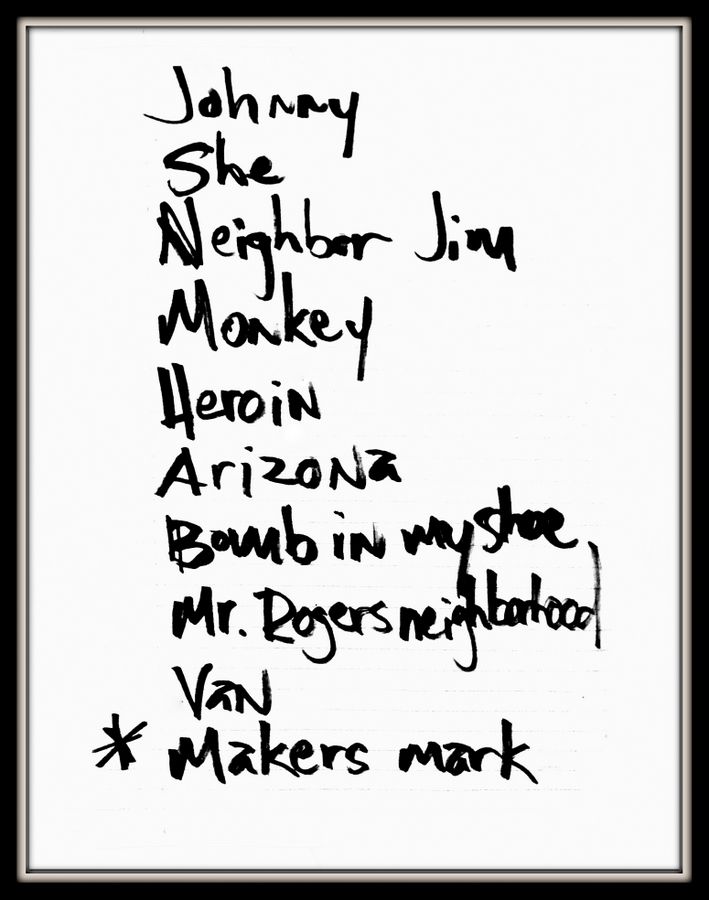 Johnny
She
Neighbor Jim
Monkey
Heroin
Arizona
Bomb in my shoe
Mr. Rogers neighborhood
Van
* Makers mark